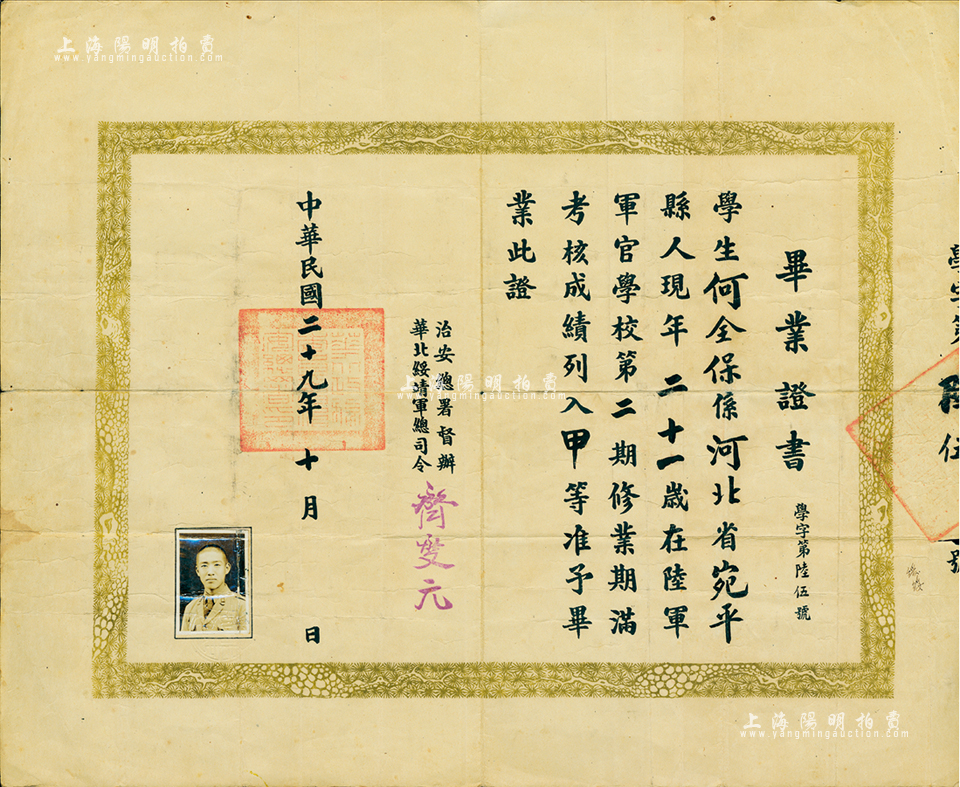 畢業證書
學字第陸伍號
學生何全保係河北省宛平
縣人現年二十一歲在陸軍
軍官學校第二期修業期滿
考核成績列入甲等准予畢
業此證
治安總署督辦
華北綏靖軍總司令
齊燮元
中華民國二十九年十月 日
學字第陸伍 號
上海陽明拍賣
www.yangmingauction.com
上海陽明拍賣
www.yangmingauction.com
上海陽明拍賣
www.yangmingauction.com